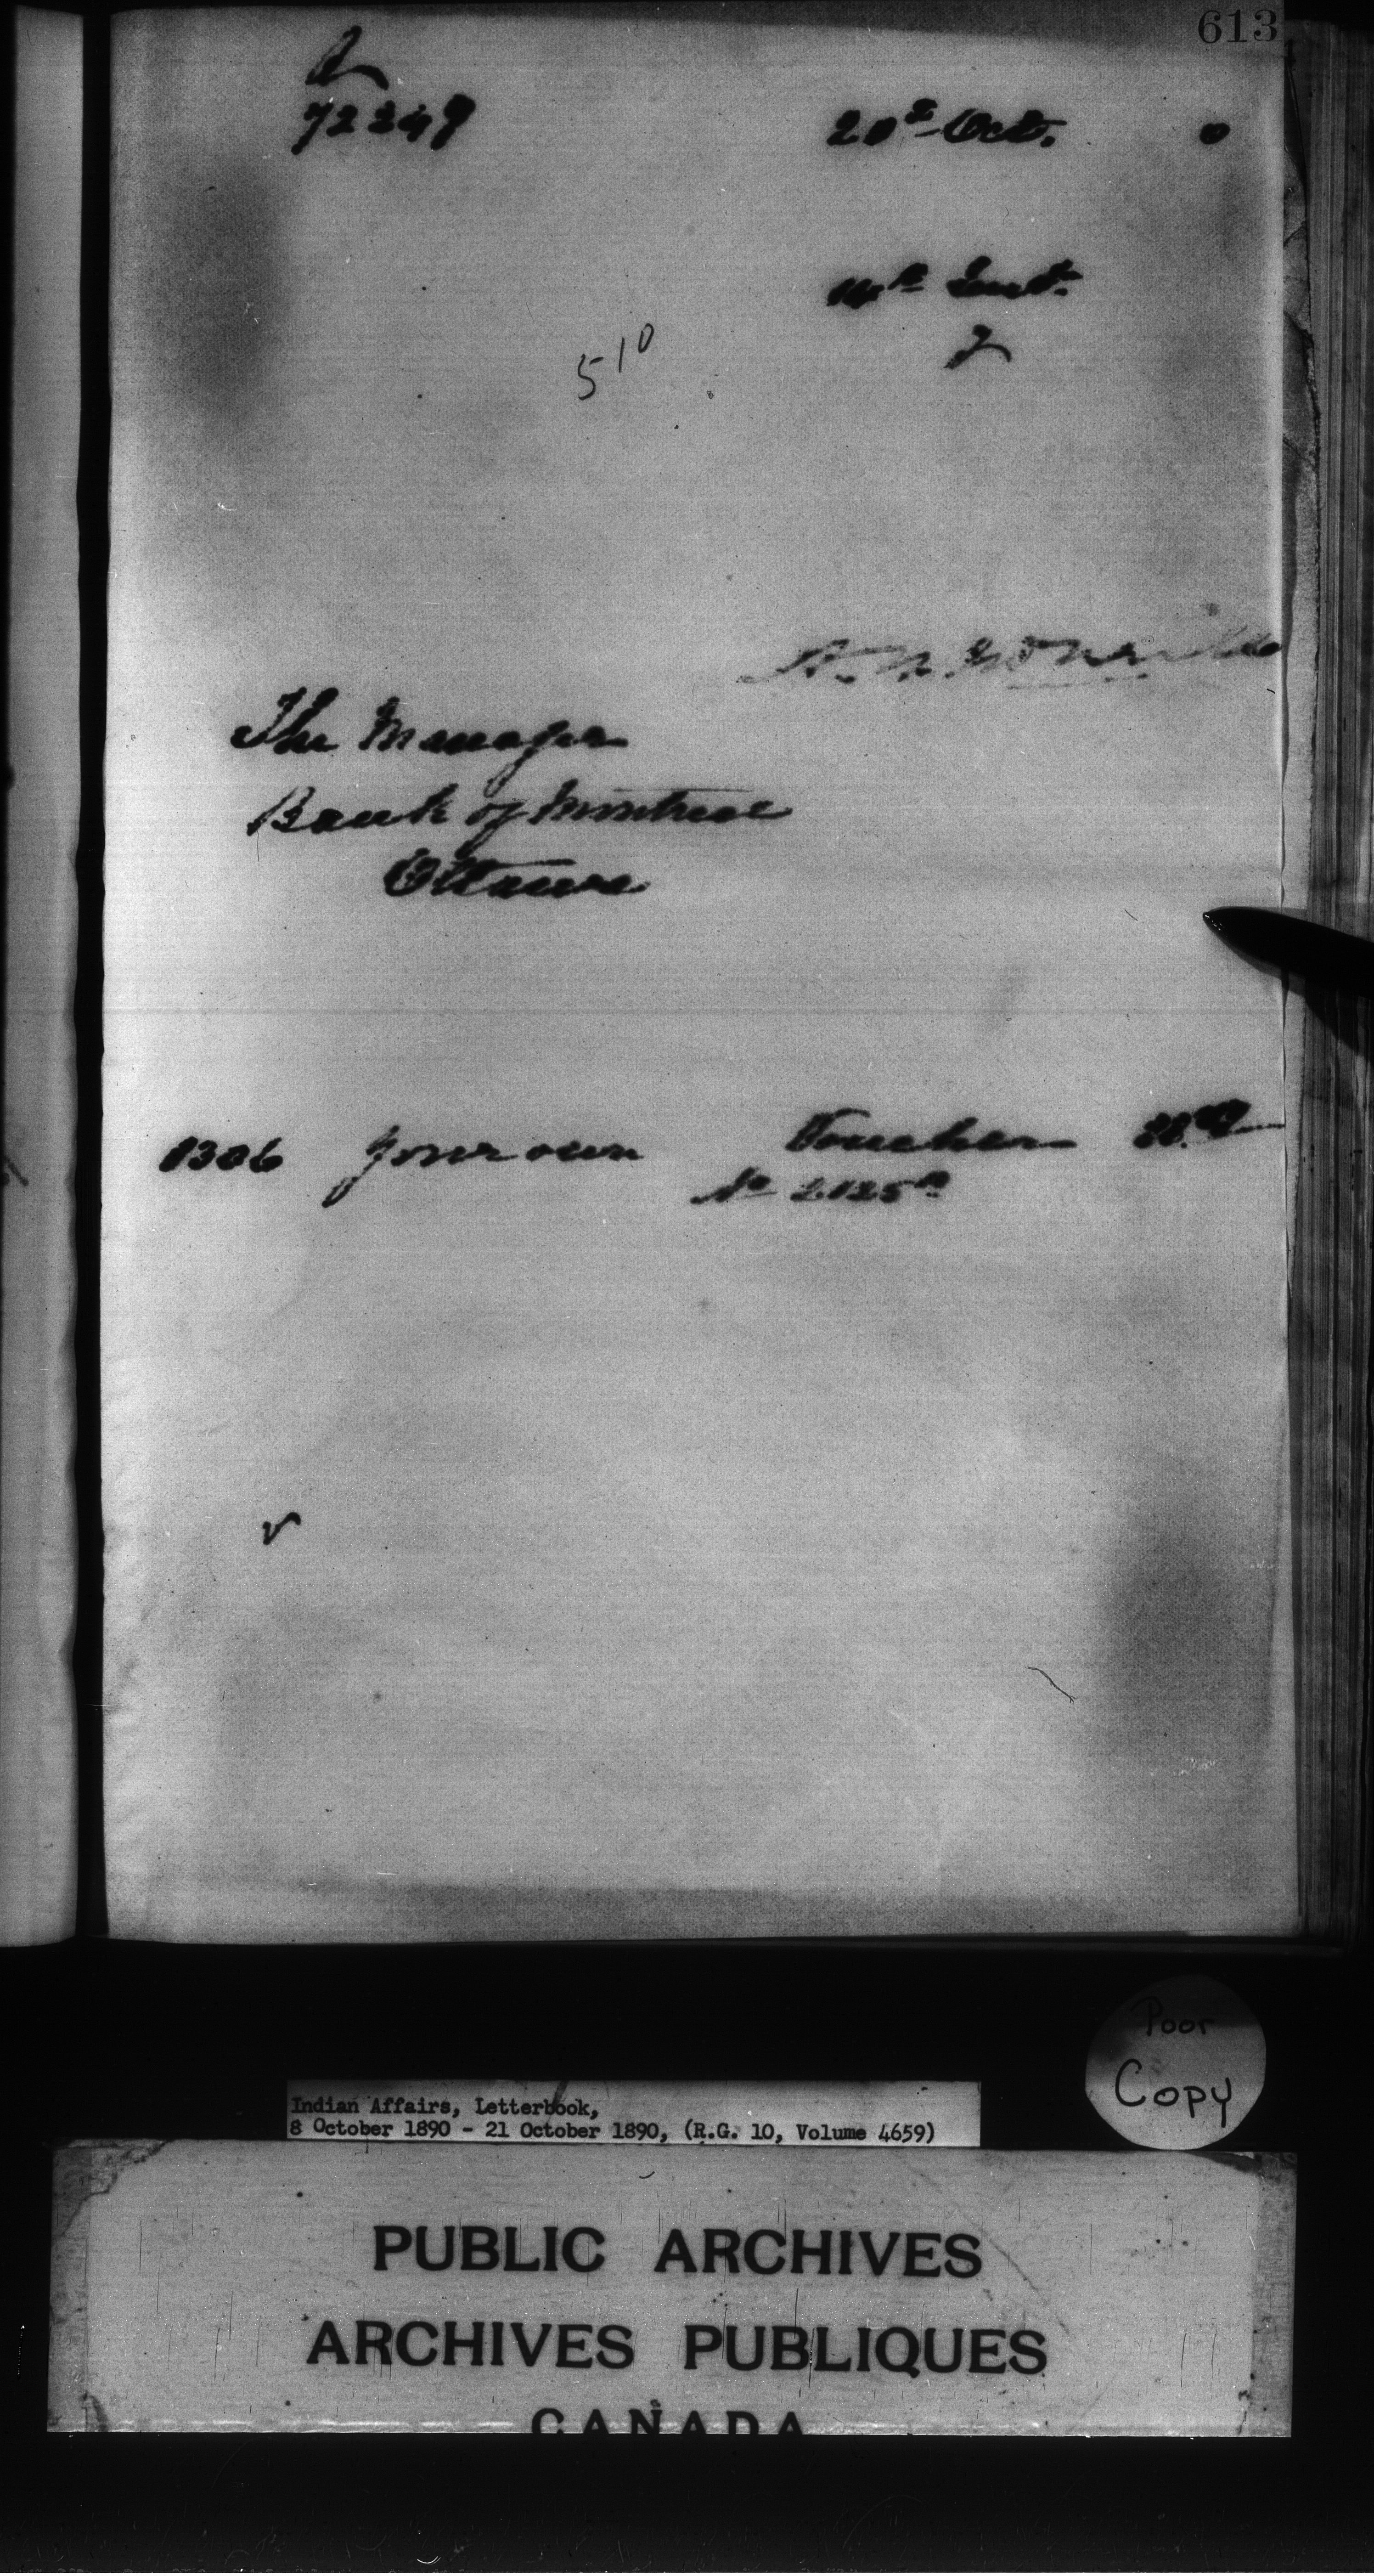 613
72249
20th Oct. 0
14th Inst.
510
The Manager
Bank of Montreal
Ottawa
1306 Your own Voucher
No 2125
Poor
Copy
Indian Affairs, Letterbook,
8 October 1890 - 21 October 1890, (R.G. 10, Volume 4659)
PUBLIC ARCHIVES
ARCHIVES PUBLIQUES
CANADA